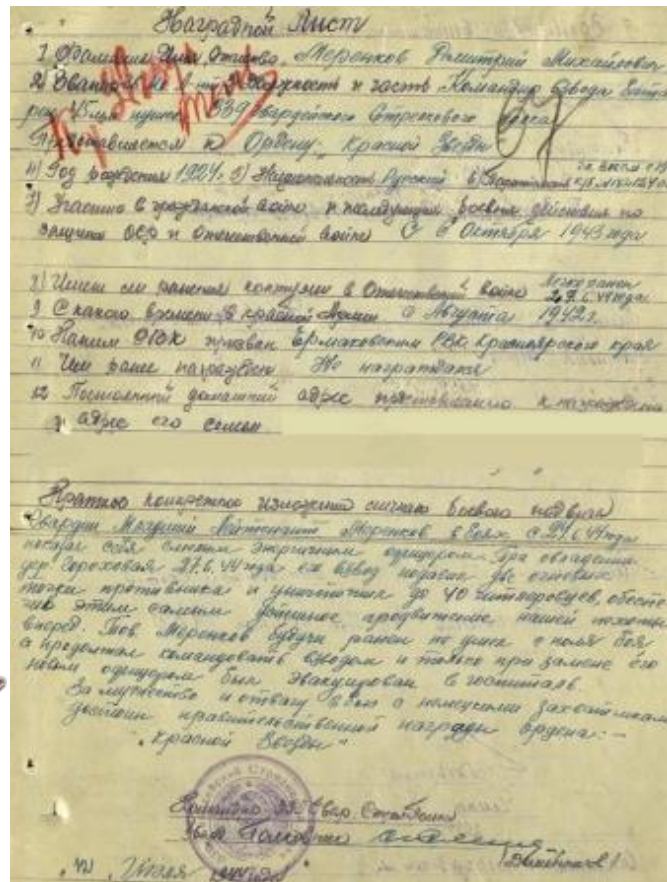 Наградной Лист
1 Фамилия Имя, Отчество, Меренков Димитрий Михайлович
2) Звание Должность и часть Командир взвода Бата
реи 45мм пушек гвардейского Стрелкового Полка
Представляется к Ордену „Красной Звезды
4) Год рождения 1924. 5) Национальность Русский 6)
7) Участие в гражданской войне и последующих боевых действиях по
защите СССР и отечественной войне С 6 Октября 1943 года
8) Имеет ли ранения контузии в Отечественной войне Легко ранен
27.6.44 года
9 С какого времени в красной Армии с Августа 1942 г.
10 Каким РВК призван Ермаковским РВК, Красноярского края
11 Чем ранее награжден Не награждался
12 Постоянный домашний адрес представляемого к награждению
и адрес его семьи
Краткое конкретное изложение личного боевого подвига
Гвардии Младший Лейтенант Меренков в боях с 24.6.44 года
показал себя смелым энергичным офицером. При овладении
дер. Гороховая 27.6.44 года его взвод подавил две огневых
точки противника и уничтожил до 40 гитлеровцев, обеспе
чив этим самым успешное продвижение нашей пехоты
вперед. Тов Меренков будучи ранен не ушел с поля боя
а продолжал командовать взводом и только при замене его
новым офицером был эвакуирован в госпиталь.
За мужество и отвагу в бою с немецкими захватчиками
достоин правительственной награды ордена:—
„Красной Звезды"
Командир Гвар. Стр. Полка
Гвард. Полковник
Июля